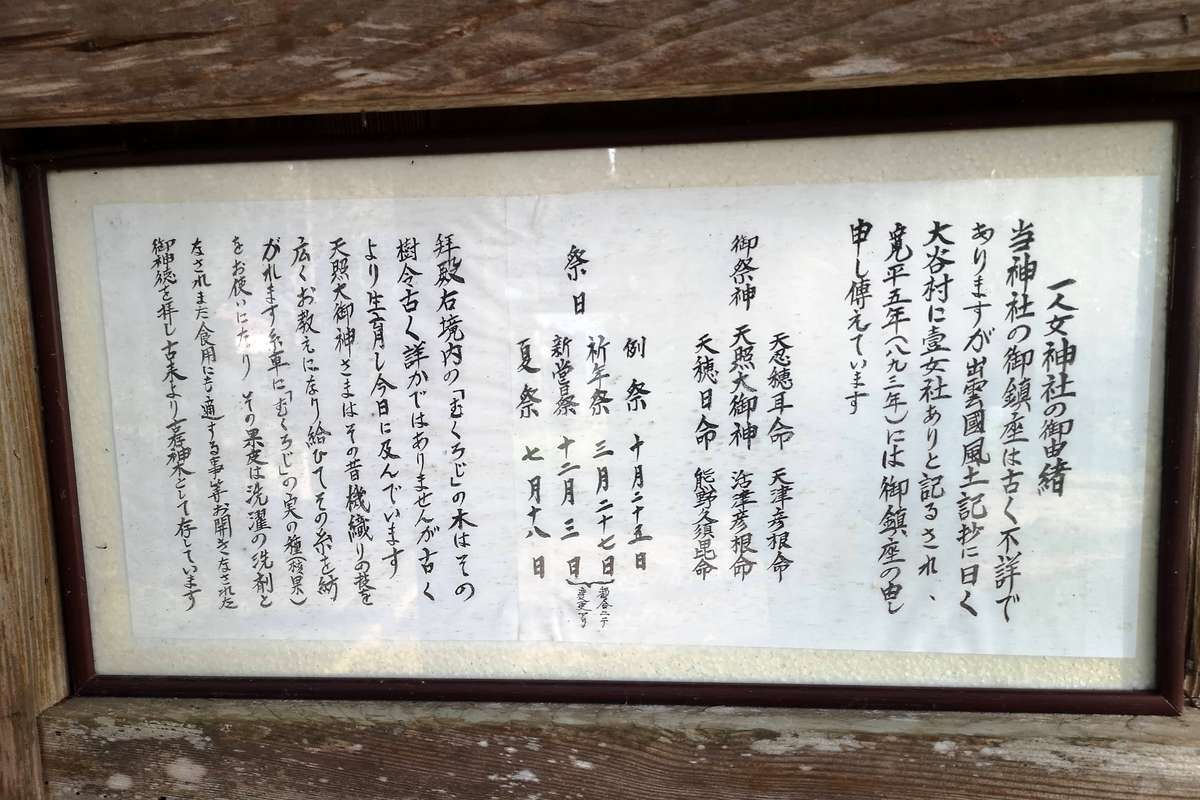 一人女神社の御由緒
当神社の御鎮座は古く不詳で
ありますが出雲國風土記抄に曰く
大谷村に壹女社ありと記るされ、
寛平五年(八九三年)には御鎮座の由し
申し傳えています
御祭神
天忍穂耳命 天津彦根命
天照大御神 活津彦根命
天穂日命 熊野久須毘命
祭日
例祭 十月二十五日
祈年祭 三月二十七日
新嘗祭 十二月三日
都合ニテ
変更アリ
夏祭 七月十八日
拝殿右境内の「むくろじ」の木はその
樹令古く詳かではありませんが古く
より生育し今日に及んでいます
天照大御神さまはその昔機織りの技を
広くお教えになり給ひてその糸を紡
がれます糸車に「むくろじ」の実の種(核果)
をお使いになり その果皮は洗濯の洗剤と
なされまた食用にも適する事等お開きなされた
御神徳を拝し古来より御神木として存しています